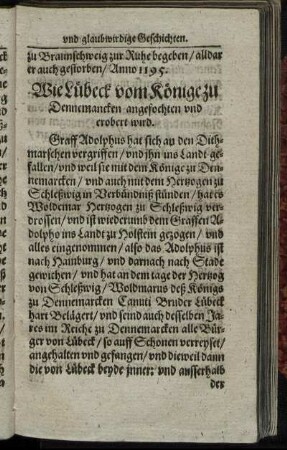 vnd glaubwirdige Geschichten.
zu Braunschweig zur Ruhe begeben / alldar
er auch gestorben / Anno 1195.
Wie Lübeck vom Könige zu
Dennemarcken angefochten vnd
erobert wird.
Graff Adolphus hat sich an den Dith-
marschen vergriffen / vnd ihn ins Landt ge-
fallen / vnd weil sie mit dem Könige zu Den-
nemarcken / vnd auch mit dem Hertzogen zu
Schleßwig in Verbündniß stünden / hat es
Woldemar Hertzogen zu Schleßwig ver-
drossen / vnd ist wiederumb dem Graffen A-
dolpho ins Landt zu Holstein gezogen / vnd
alles eingenommen / also das Adolphus ist
nach Hamburg / vnd darnach nach Stade
gewichen / vnd hat an dem tage der Hertzog
von Schleßwig / Woldmarus deß Königs
zu Dennemarcken Canuti Bruder Lübeck
hart Belägert / vnd seind auch desselben Ja-
res im Reiche zu Dennemarcken alle Bür-
ger von Lübeck / so auff Schonen verreyset /
angehalten vnd gefangen / vnd dieweil dann
die von Lübeck beyde jnner: vnd ausserhalb
der